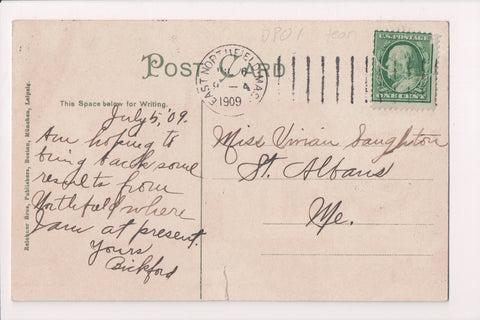 DPO1 tear
POST CARD
This Space below for Writing.
EAST NORTHFIELD MASS
1909
U.S. POSTAGE
ONE CENT
July 5, '09.
Am hoping to
bring back some
results from
Northfield where
I am at present.
Yours
Bickford
Miss Vivian Daughton
St. Albans
Me.
Reichner Bros., Publishers, Boston, München, Leipzig.